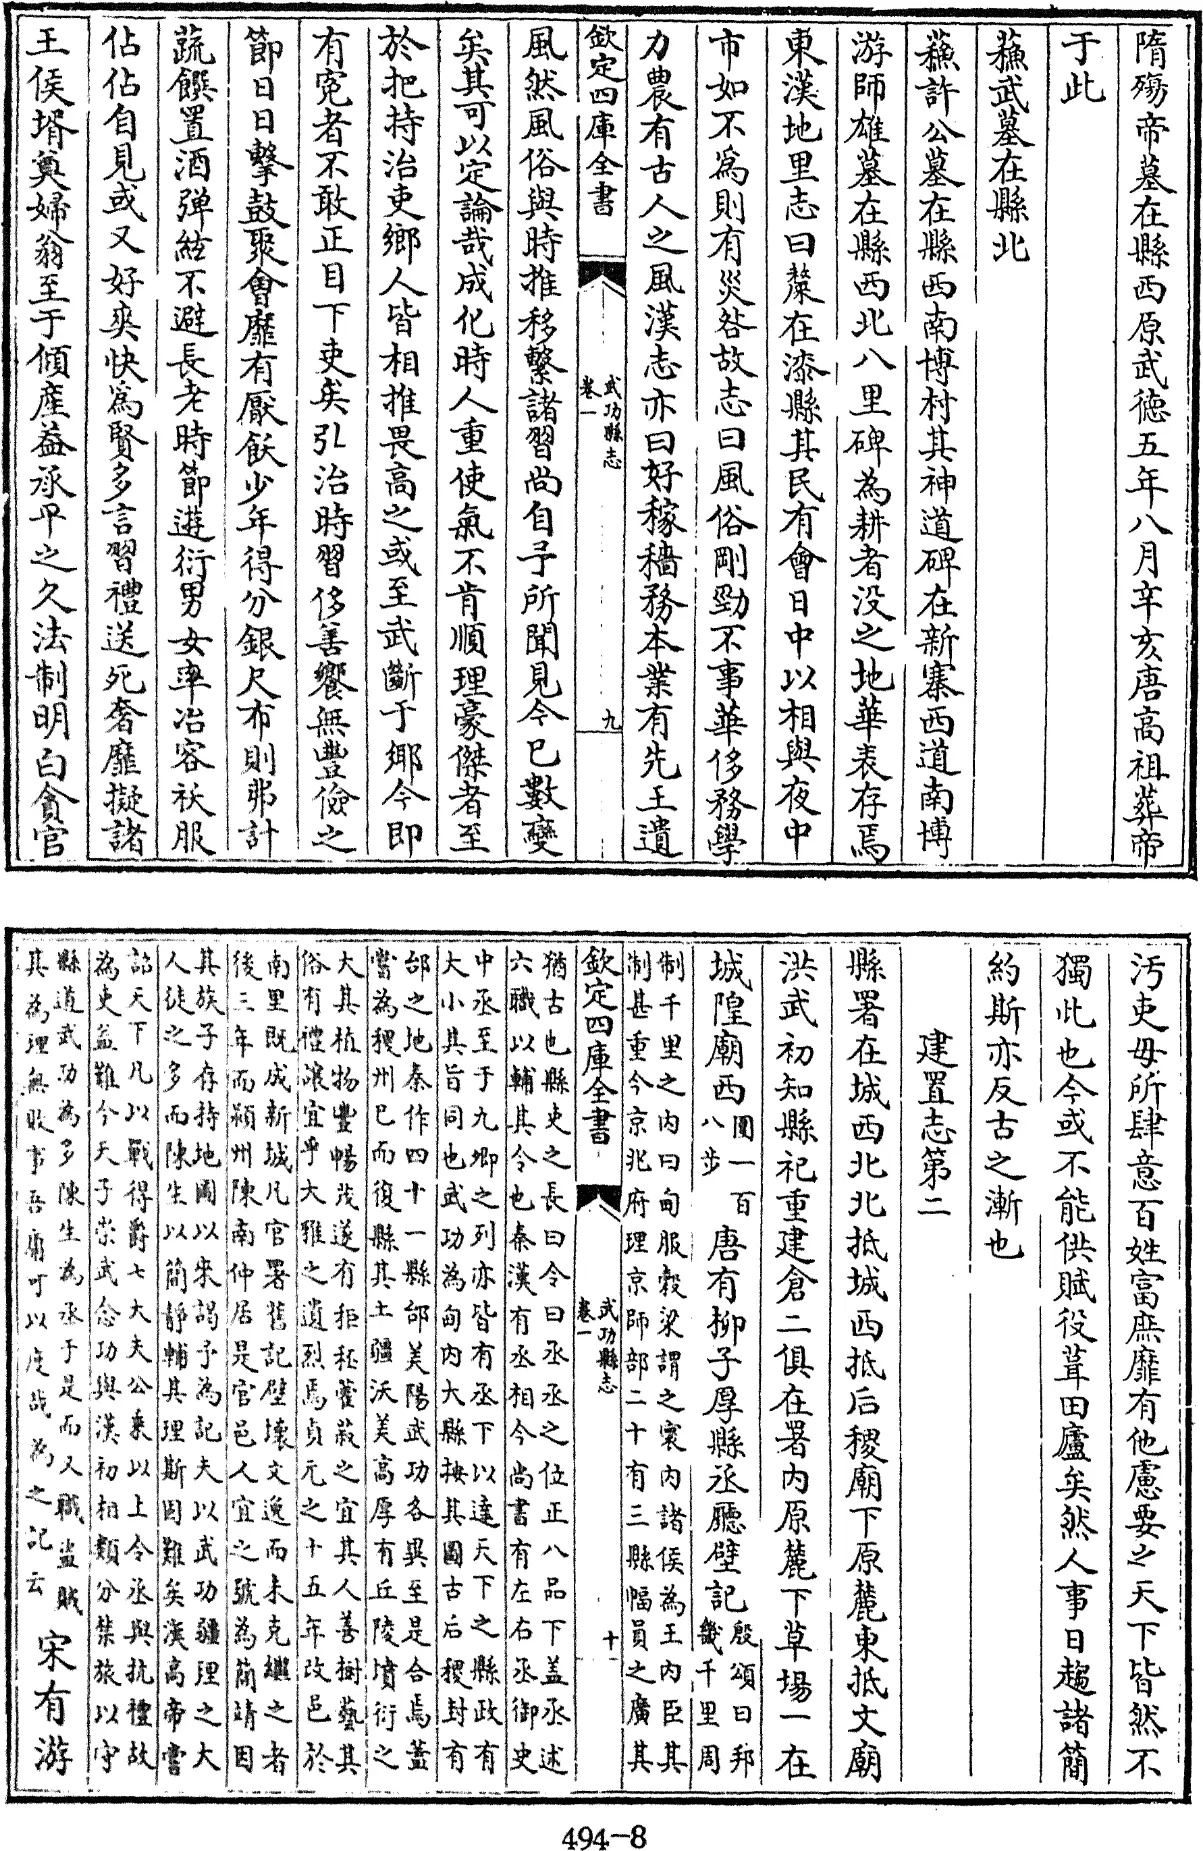 隋殤帝墓在縣西原武德五年八月辛亥唐高祖葬帝
于此
蘓武墓在縣北
蘓許公墓在縣西南博村其神道碑在新寨西道南博
游師雄墓在縣西北八里碑為耕者没之地華表存焉
東漢地里志曰斄在漆縣其民有會日中以相與夜中
市如不為則有災咎故志曰風俗剛勁不事華侈務學
力農有古人之風漢志亦曰好稼穡務本業有先王遺
欽定四庫全書
武功縣志
卷一
九
風然風俗與時推移繫諸習尚自予所聞見今已數變
矣其可以定論哉成化時人重使氣不肯順理豪傑者至
於把持治吏鄉人皆相推畏高之或至武斷于鄉今即
有寃者不敢正目下吏矣弘治時習侈善饗無豐儉之
節日日擊鼓聚會靡有厭飫少年得分銀尺布則弗計
蔬饌置酒彈絃不避長老時節遊衍男女率冶容袨服
佔佔自見或又好爽快為賢多言習禮送死奢靡擬諸
王侯壻奠婦翁至于傾產益承平之久法制明白貪官
汚吏毋所肆意百姓富庶靡有他慮要之天下皆然不
獨此也今或不能供賦役葺田廬矣然人事日趨諸簡
約斯亦反古之漸也
建置志第二
縣署在城西北北抵城西抵后稷廟下原麓東抵文廟
洪武初知縣祀重建倉二俱在署内原麓下草場一在
城隍廟西圍一百八步唐有柳子厚縣丞廳壁記殷頌曰邦畿千里周
制千里之内曰甸服穀梁謂之寰内諸侯為王内臣其
制甚重今京兆府理京師部二十有三縣幅員之廣其
欽定四庫全書
武功縣志
卷一
十
猶古也縣吏之長曰令曰丞丞之位正八品下蓋丞述
六職以輔其令也秦漢有丞相今尚書有左右丞御史
中丞至于九卿之列亦皆有丞下以達天下之縣政有
大小其旨同也武功為甸内大縣按其圖古后稷封有
邰之地秦作四十一縣邰美陽武功各異至是合焉蓋
嘗為稷州已而復縣其土疆沃美高厚有丘陵墳衍之
大其植物豐暢茂遂有秬秠藿菽之宜其人善樹藝其
俗有禮讓宜乎大雅之遺烈焉貞元之十五年改邑於
南里既成新城凡官署舊記壁壞文逸而未克繼之者
後三年而潁州陳南仲居是官邑人宜之號為簡靖因
其族子存持地圖以來謁予為記夫以武功疆理之大
人徒之多而陳生以簡靜輔其理斯固難矣漢高帝嘗
詔天下凡以戰得爵七大夫公乘以上令丞與抗禮故
為吏益難今天子崇武念功與漢初相類分禁旅以守
縣道武功為多陳生為丞于是而又職盗賊
其為理無敗事吾庸可以度哉為之記云宋有游
494-8